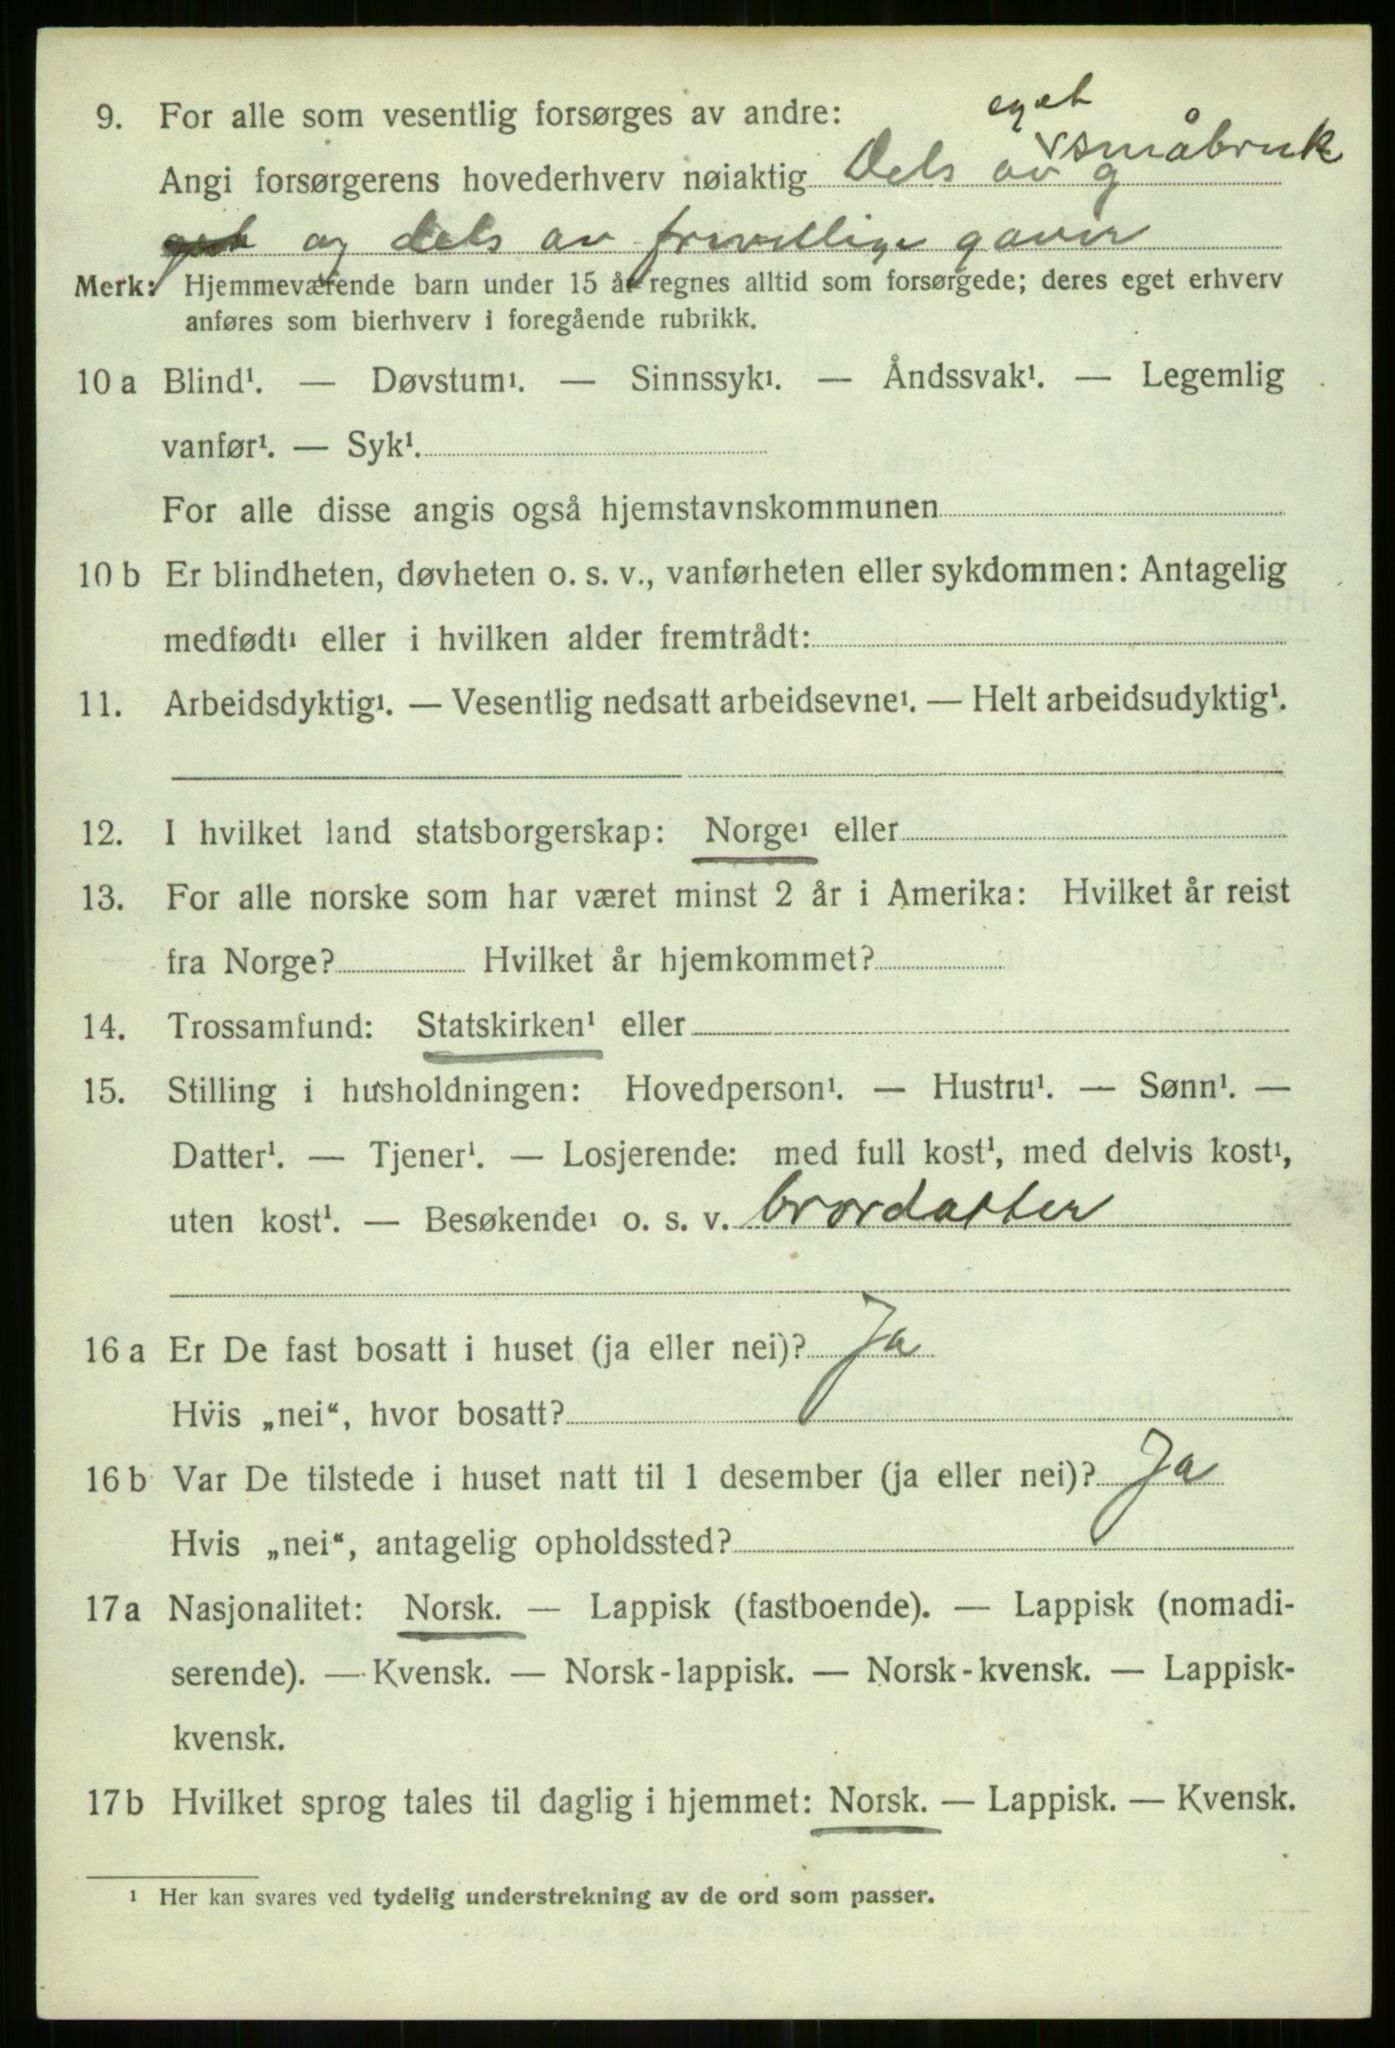 9. For alle som vesentlig forsørges av andre: eget
Angi forsørgerens hovederhverv nøiaktig Dels av småbruk
og dels av frivillige gaver
Merk: Hjemmeværende barn under 15 år regnes alltid som forsørgede; deres eget erhverv
anføres som bierhverv i foregående rubrikk.
10 a Blind¹. — Døvstum¹. — Sinnssyk¹. — Åndssvak¹. — Legemlig
vanfør¹. — Syk¹.
For alle disse angis også hjemstavnskommunen
10 b Er blindheten, døvheten o. s. v., vanførheten eller sykdommen: Antagelig
medfødt¹ eller i hvilken alder fremtrådt:
11. Arbeidsdyktig¹. — Vesentlig nedsatt arbeidsevne¹. — Helt arbeidsudyktig¹.
12. I hvilket land statsborgerskap: Norge¹ eller
13. For alle norske som har været minst 2 år i Amerika: Hvilket år reist
fra Norge? Hvilket år hjemkommet?
14. Trossamfund: Statskirken¹ eller
15. Stilling i husholdningen: Hovedperson¹. — Hustru¹. — Sønn¹. —
Datter¹. — Tjener¹. — Losjerende: med full kost¹, med delvis kost¹,
uten kost¹. — Besøkende¹ o. s. v. brordatter
16 a Er De fast bosatt i huset (ja eller nei)? Ja
Hvis „nei“, hvor bosatt?
16 b Var De tilstede i huset natt til 1 desember (ja eller nei)? Ja
Hvis „nei“, antagelig opholdssted?
17 a Nasjonalitet: Norsk. — Lappisk (fastboende). — Lappisk (nomadi-
serende). — Kvensk. — Norsk-lappisk. — Norsk-kvensk. — Lappisk-
kvensk.
17 b Hvilket sprog tales til daglig i hjemmet: Norsk. — Lappisk. — Kvensk.
¹ Her kan svares ved tydelig understrekning av de ord som passer.